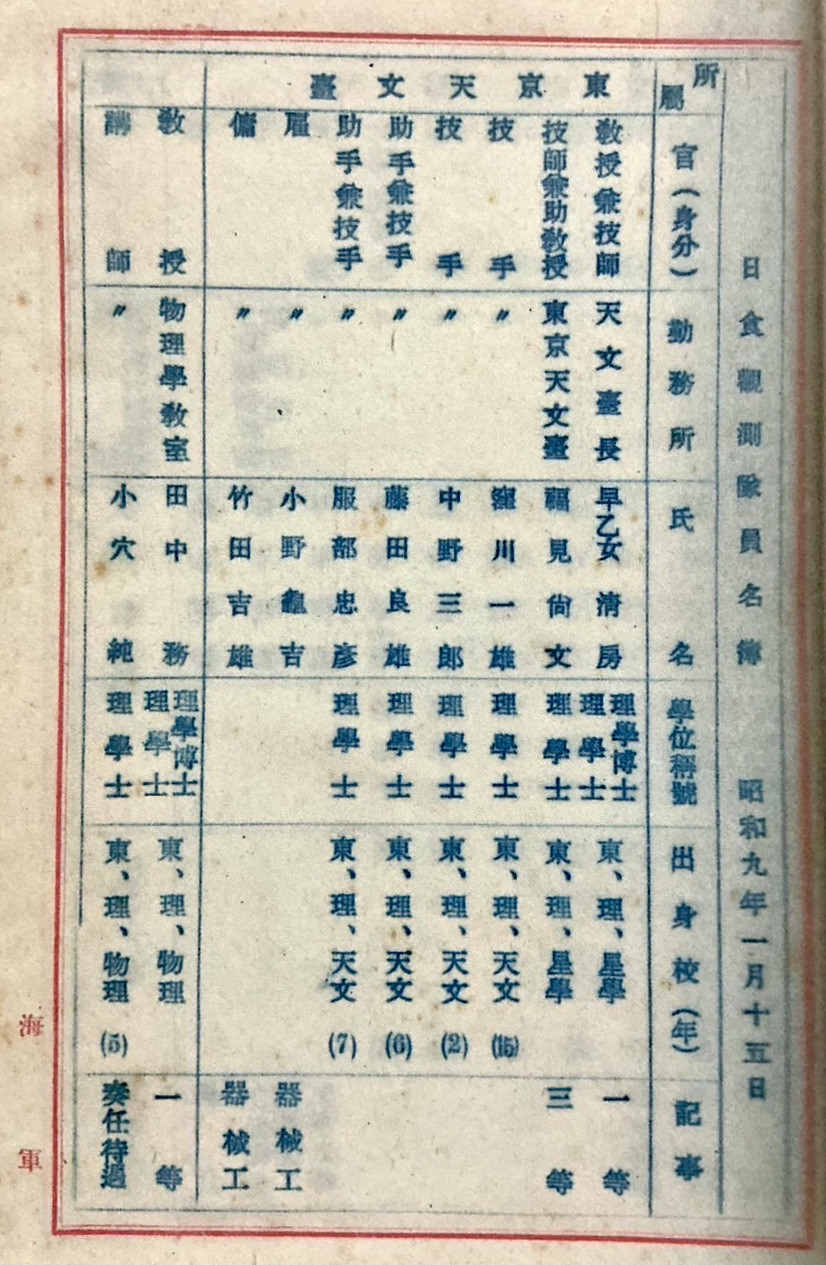 日食觀測隊員名簿 昭和九年一月十五日
所屬 官(身分) 勤務所 氏名 學位稱號 出身校(年) 記事
東京天文臺
教授兼技師 天文臺長 早乙女清房 理學博士 理學士 東、理、星學 一等
技師兼助教授 東京天文臺 福見尙文 理學士 東、理、星學 三等
技手 〃 窪川一雄 理學士 東、理、天文 (15)
技手 〃 中野三郎 理學士 東、理、天文 (2)
助手兼技手 〃 藤田良雄 理學士 東、理、天文 (6)
助手兼技手 〃 服部忠彥 理學士 東、理、天文 (7)
雇 〃 小野龜吉 器械工
傭 〃 竹田吉雄 器械工
教授 物理學教室 田中務 理學博士 理學士 東、理、物理 一等
講師 〃 小穴純 理學士 東、理、物理 (5) 奏任待遇
海軍